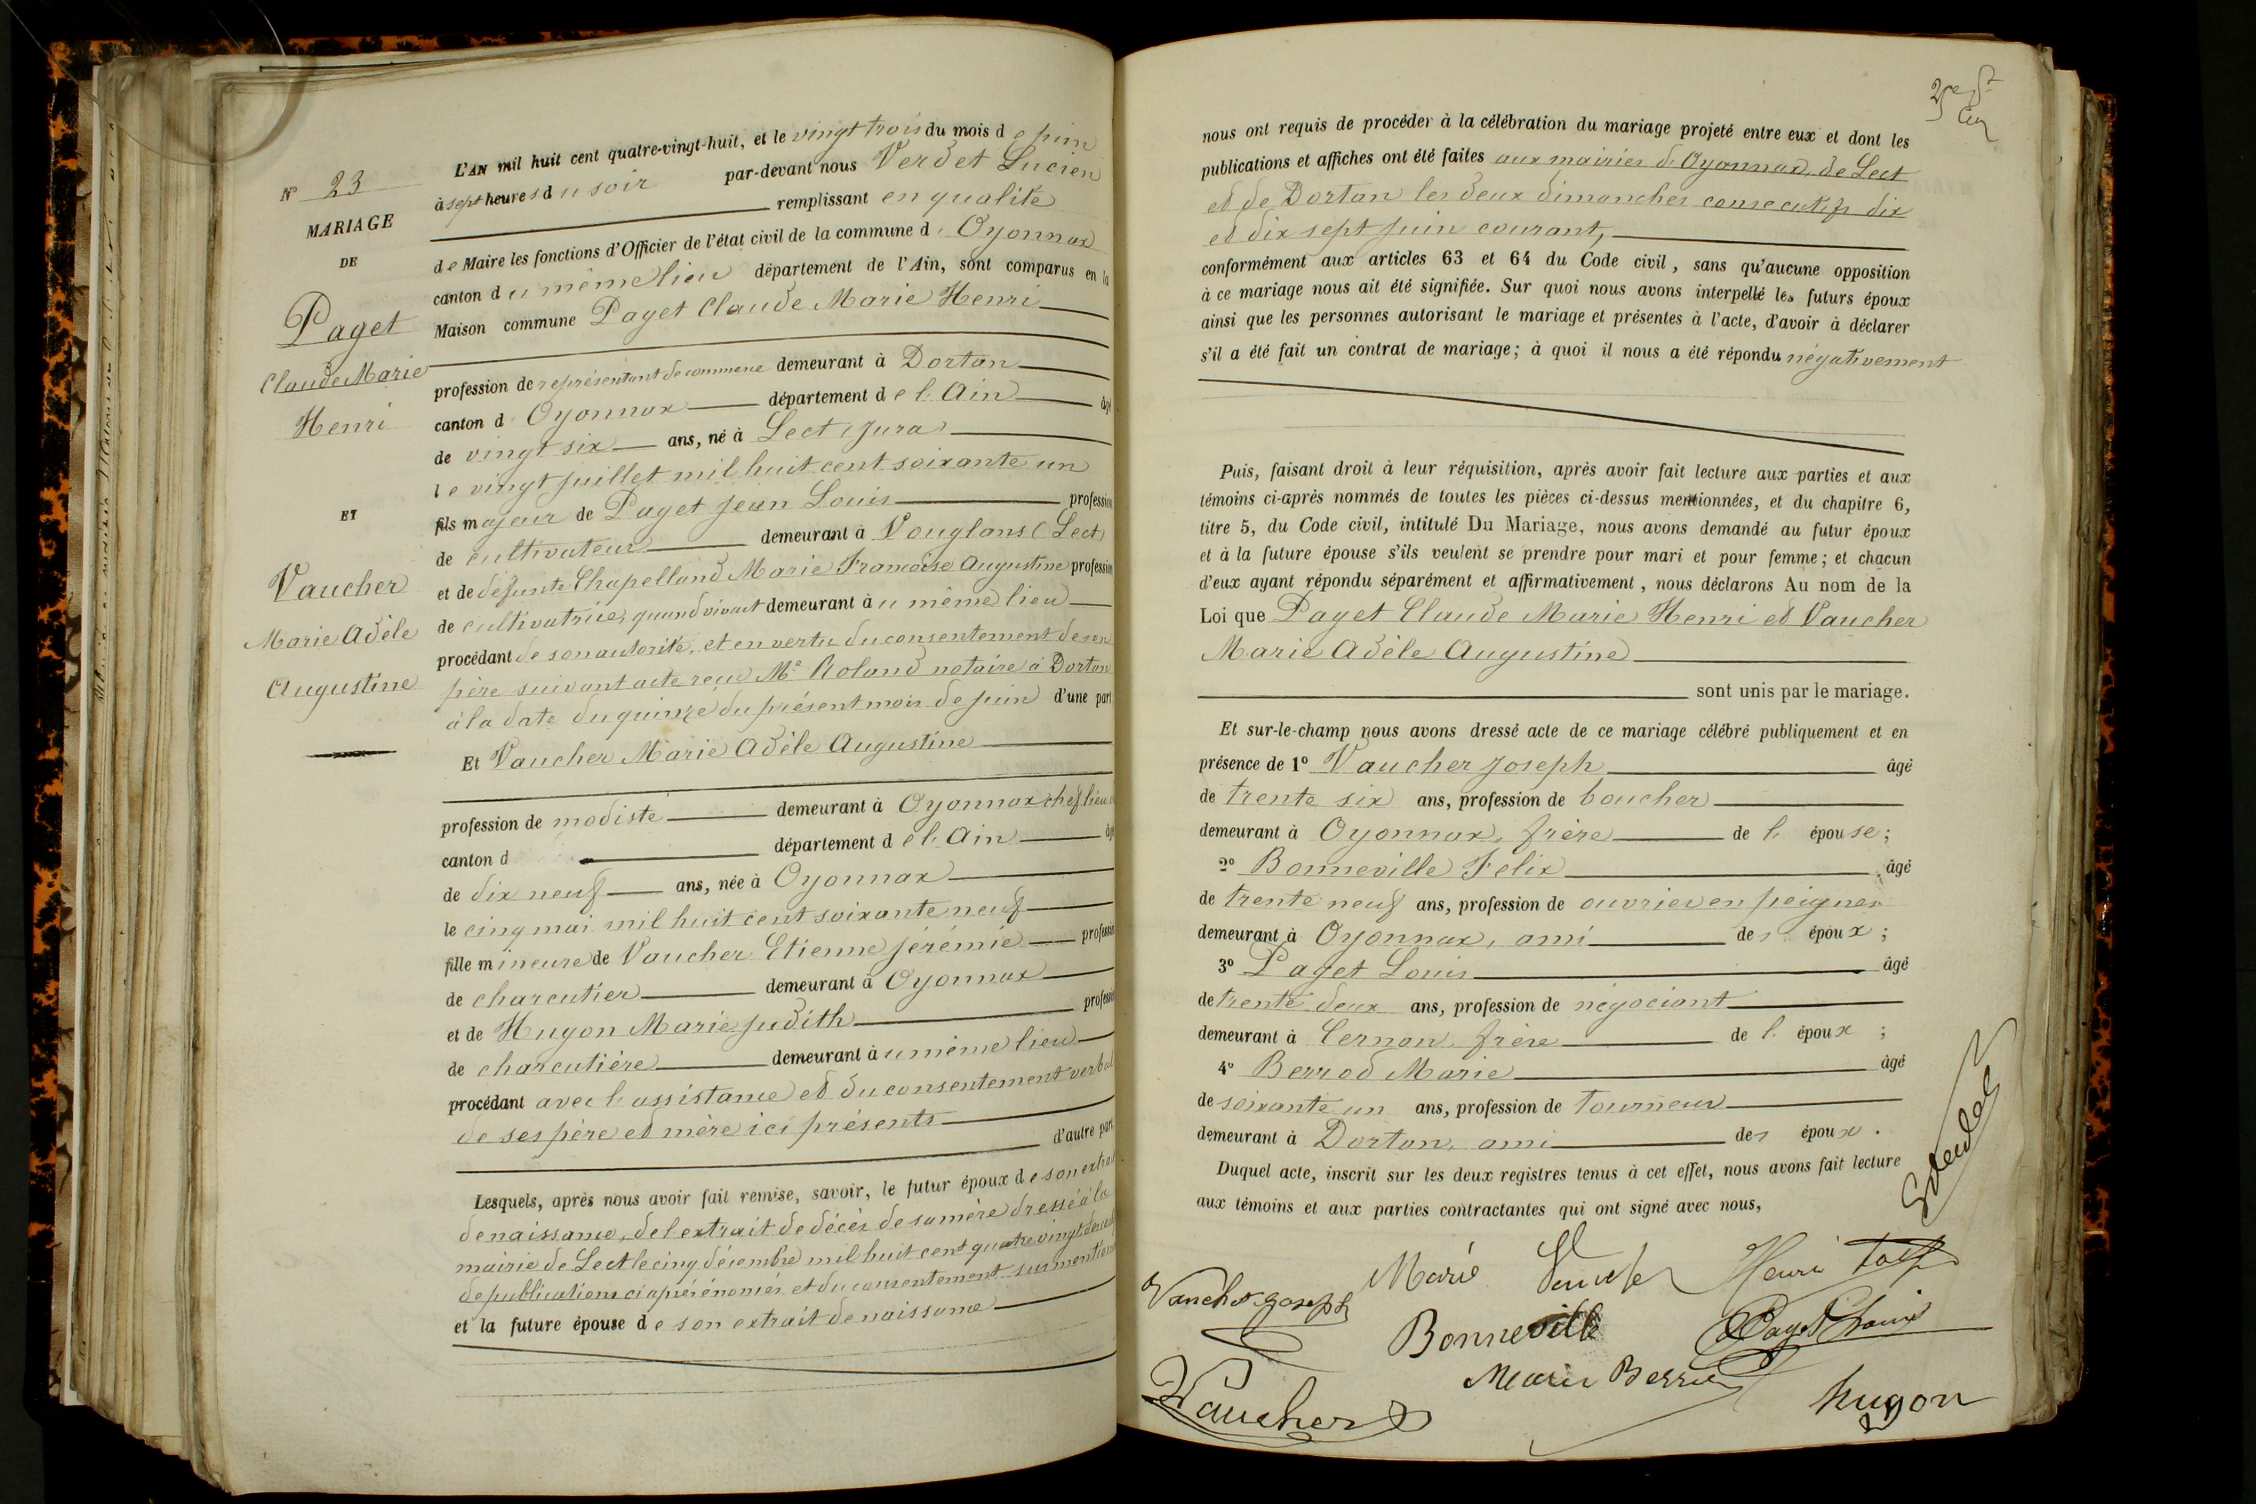 N° 23
MARIAGE
DE
Paget
Claude Marie
Henri
ET
Vaucher
Marie Adèle
Augustine
L'AN mil huit cent quatre-vingt-huit, et le vingt trois du mois de juin
à sept heures du soir par-devant nous Verdet Lucien
remplissant en qualité
de Maire les fonctions d'Officier de l'état civil de la commune d'Oyonnax
canton du même lieu département de l'Ain, sont comparus en la
Maison commune Paget Claude Marie Henri
profession de représentant de commerce demeurant à Dortan
canton d'Oyonnax département de l'Ain âgé
de vingt six ans, né à Lect (Jura)
le vingt juillet mil huit cent soixante un
fils majeur de Paget Jean Louis profession
de cultivateur demeurant à Vouglans (Lect)
et de défunte Chapelland Marie Françoise Augustine profession
de cultivatrice, quand vivait demeurant au même lieu
procédant de son autorité, et en vertu du consentement de son
père suivant acte reçu Me Roland notaire à Dortan
à la date du quinze du présent mois de juin d'une part
Et Vaucher Marie Adèle Augustine
profession de modiste demeurant à Oyonnax chef lieu de
canton d département de l'Ain âgé
de dix neuf ans, née à Oyonnax
le cinq mai mil huit cent soixante neuf
fille mineure de Vaucher Etienne Jérémie profession
de charcutier demeurant à Oyonnax
et de Hugon Marie Judith profession
de charcutière demeurant au même lieu
procédant avec l'assistance et du consentement verbal
de ses père et mère ici présents
d'autre part
Lesquels, après nous avoir fait remise, savoir, le futur époux de son extrait
de naissance, de l'extrait de décès de sa mère dressé à la
mairie de Lect le cinq décembre mil huit cent quatre vingt deux
de publications ci après énoncées et du consentement sus mentionné
et la future épouse de son extrait de naissance
nous ont requis de procéder à la célébration du mariage projeté entre eux et dont les
publications et affiches ont été faites aux mairies d'Oyonnax, de Lect
et de Dortan les deux dimanches consecutifs dix
et dix sept juin courant,
conformément aux articles 63 et 64 du Code civil, sans qu'aucune opposition
à ce mariage nous ait été signifiée. Sur quoi nous avons interpellé les futurs époux
ainsi que les personnes autorisant le mariage et présentes à l'acte, d'avoir à déclarer
s'il a été fait un contrat de mariage; à quoi il nous a été répondu négativement
Puis, faisant droit à leur réquisition, après avoir fait lecture aux parties et aux
témoins ci-après nommés de toutes les pièces ci-dessus mentionnées, et du chapitre 6,
titre 5, du Code civil, intitulé Du Mariage, nous avons demandé au futur époux
et à la future épouse s'ils veulent se prendre pour mari et pour femme; et chacun
d'eux ayant répondu séparément et affirmativement, nous déclarons Au nom de la
Loi que Paget Claude Marie Henri et Vaucher
Marie Adèle Augustine
sont unis par le mariage.
Et sur-le-champ nous avons dressé acte de ce mariage célébré publiquement et en
présence de 1° Vaucher Joseph âgé
de trente six ans, profession de boucher
demeurant à Oyonnax, frère de l'épouse;
2° Bonneville Felix âgé
de trente neuf ans, profession de ouvrier en peignes
demeurant à Oyonnax, ami des époux;
3° Paget Louis âgé
de trente deux ans, profession de négociant
demeurant à Cernon, frère de l'époux;
4° Berrod Marie âgé
de soixante un ans, profession de tourneur
demeurant à Dortan, ami des époux.
Duquel acte, inscrit sur les deux registres tenus à cet effet, nous avons fait lecture
aux témoins et aux parties contractantes qui ont signé avec nous,
Vaucher Joseph
Marie Vaucher
Henri
Bonneville
Paget Louis
Marie Berrod
Vaucher
hugon